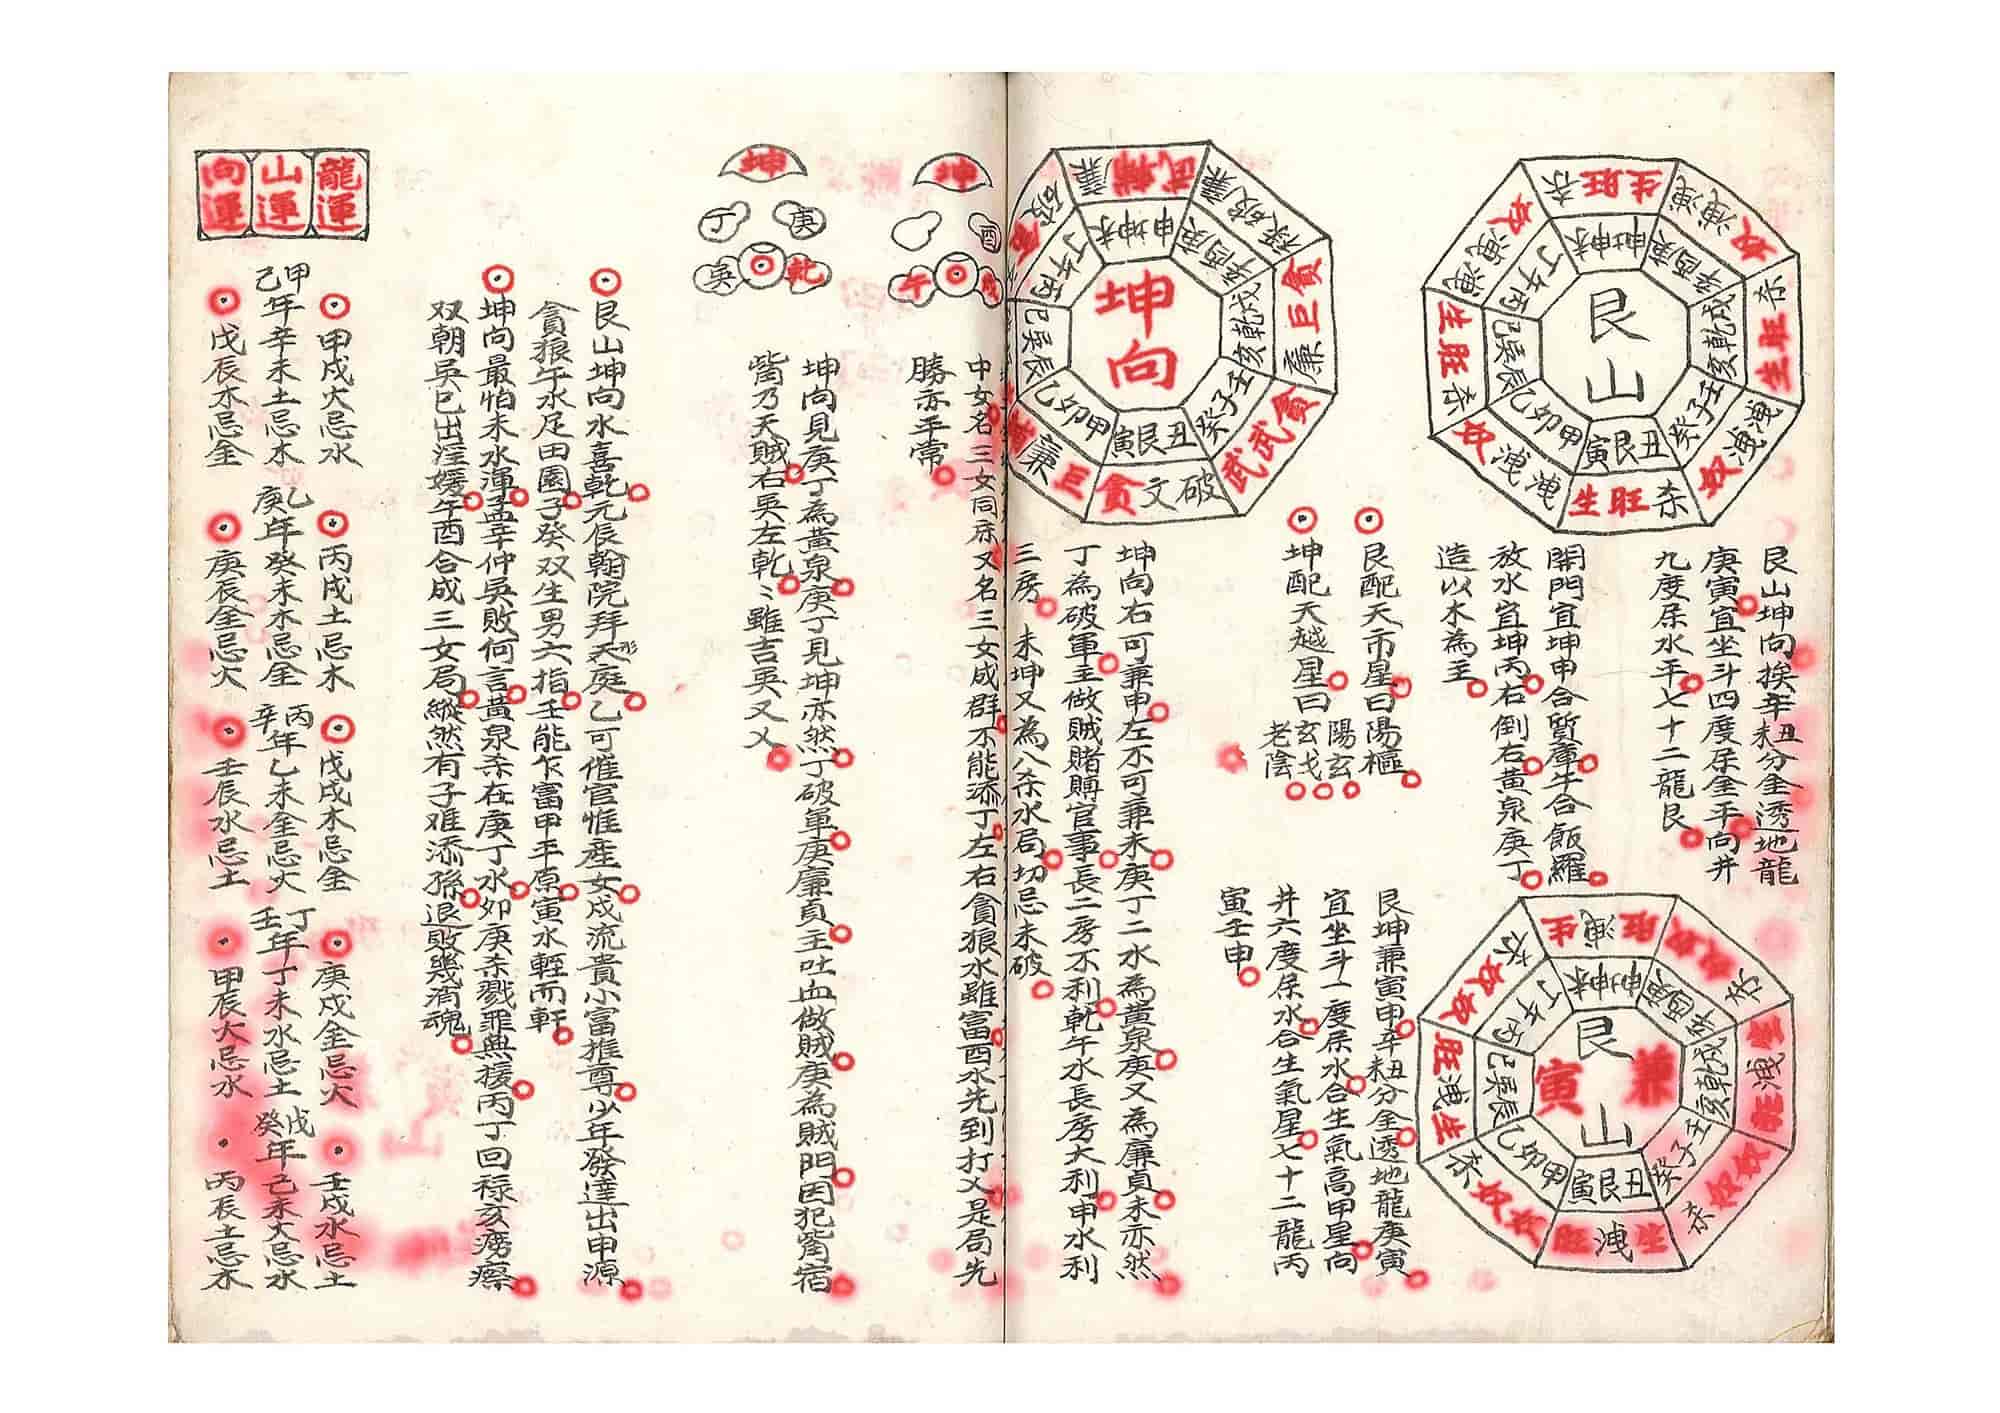 艮山
艮山坤向挨辛丑辛未分金透地龍
庚寅宜坐斗四度杘金平向井
九度杘水平七十二龍艮
開門宜坤申合質庫牛合飯羅
放水宜坤丙右倒右黃泉庚丁
造以木為主
艮山
兼寅
艮坤兼寅申辛丑辛未分金透地龍庚寅
宜坐斗一度杘水合生氣高甲星向
井六度杘水合生氣星七十二龍丙
寅壬申
艮配天市星曰陽樞
坤配天越星曰陽玄玄戈老陰
坤向
坤向右可兼申左不可兼未庚丁二水為黃泉庚又為廉貞未亦然
丁為破軍主做賊賭賻官事長二房不利乾午水長房大利申水利
三房 未坤又為八杀水局切忌未破
坤
酉
午
中女名三女同床又名三女成群不能添丁左右貪狼水雖富酉水先到打父是局先
勝亦平常
坤
丁 庚
吳 乾
坤向見庚丁為黃泉庚丁見坤亦然丁破軍庚廉貞主吐血做賊庚為賊門因犯觜宿
觜乃天賊右吳左乾乾雖吉吳又乂
艮山坤向水喜乾元辰翰院拜天形庭乙可催官惟産女戍流貴小富推尊少年發達出申源
貪狼午水足田園子癸双生男六指壬能乍富甲平原寅水輕而軒
坤向最怕未水渾孟辛仲吳敗何言黃泉杀在庚丁水卯庚杀戮罪無援丙丁回祿亥癆瘵
双朝吳巳出淫媛午酉合成三女局縱然有子难添孫退敗幾消魂
龍運
山運
向運
甲戍火忌水
丙戍土忌木
戊戍木忌金
庚戍金忌火
壬戍水忌土
甲己年辛未土忌木
乙庚年癸未木忌金
丙辛年乙未金忌火
丁壬年丁未水忌土
戊癸年己未火忌水
戊辰木忌金
庚辰金忌火
壬辰水忌土
甲辰火忌水
丙辰土忌木